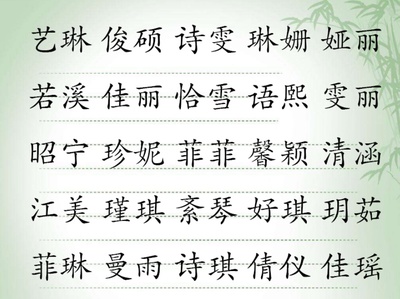 艺琳 俊硕 诗雯 琳姗 娅丽
若溪 佳丽 恰雪 语熙 雯丽
昭宁 珍妮 菲菲 馨颖 清涵
江美 瑾琪 紊琴 好琪 玥茹
菲琳 曼雨 诗琪 倩仪 佳瑶